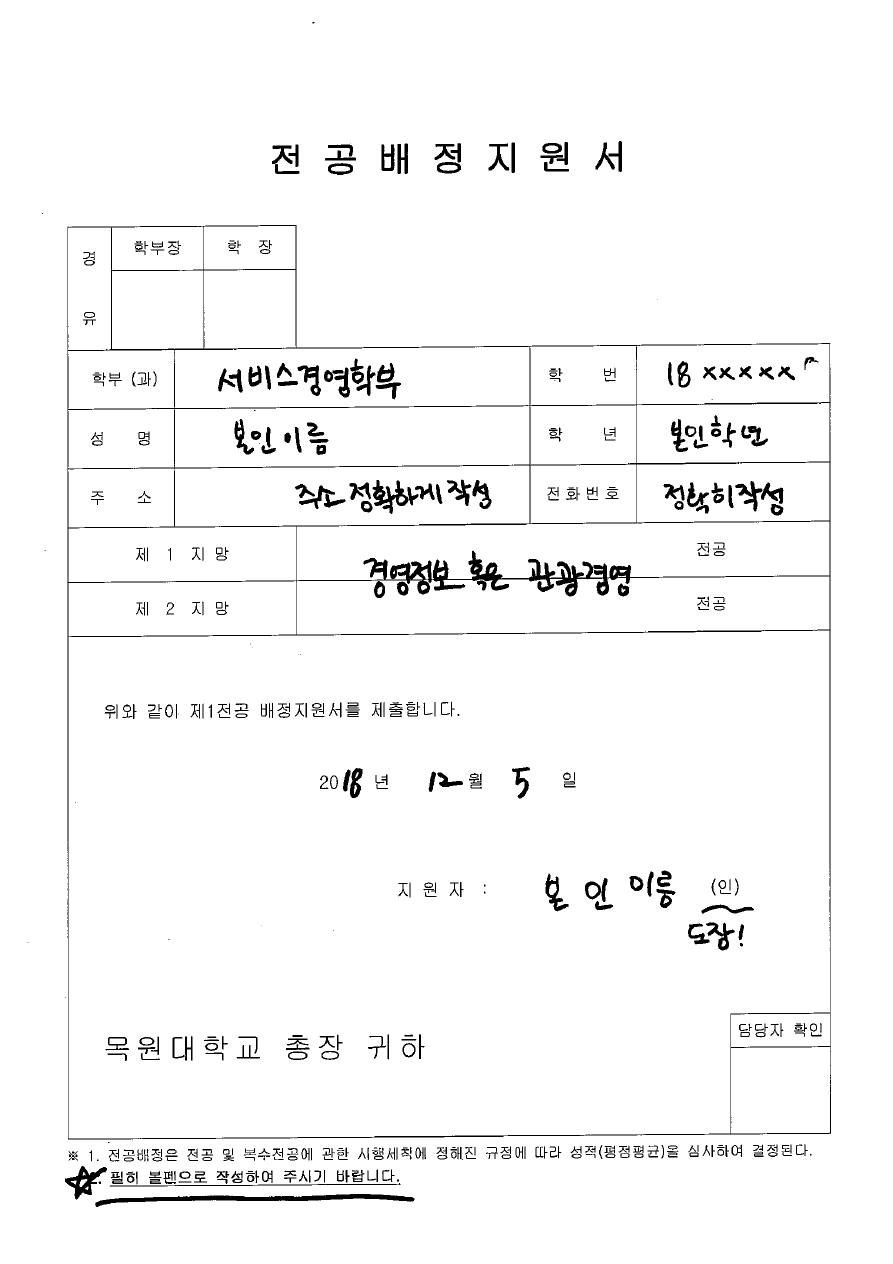 전 공 배 정 지 원 서
경 유
학부장 학 장
학부 (과) 서비스경영학부 학 번 18 xxxxx
성 명 본인이름 학 년 본인학년
주 소 주소 정확하게 작성 전화번호 정확히작성
제 1 지망 전공
경영정보 혹은 관광경영
제 2 지망 전공
위와 같이 제1전공 배정지원서를 제출합니다.
2018 년 12 월 5 일
지 원 자 : 본 인 이름 (인)
도장!
목원대학교 총장 귀하
담당자 확인
※ 1. 전공배정은 전공 및 복수전공에 관한 시행세칙에 정해진 규정에 따라 성적(평점평균)을 심사하여 결정된다.
☆. 필히 볼펜으로 작성하여 주시기 바랍니다.